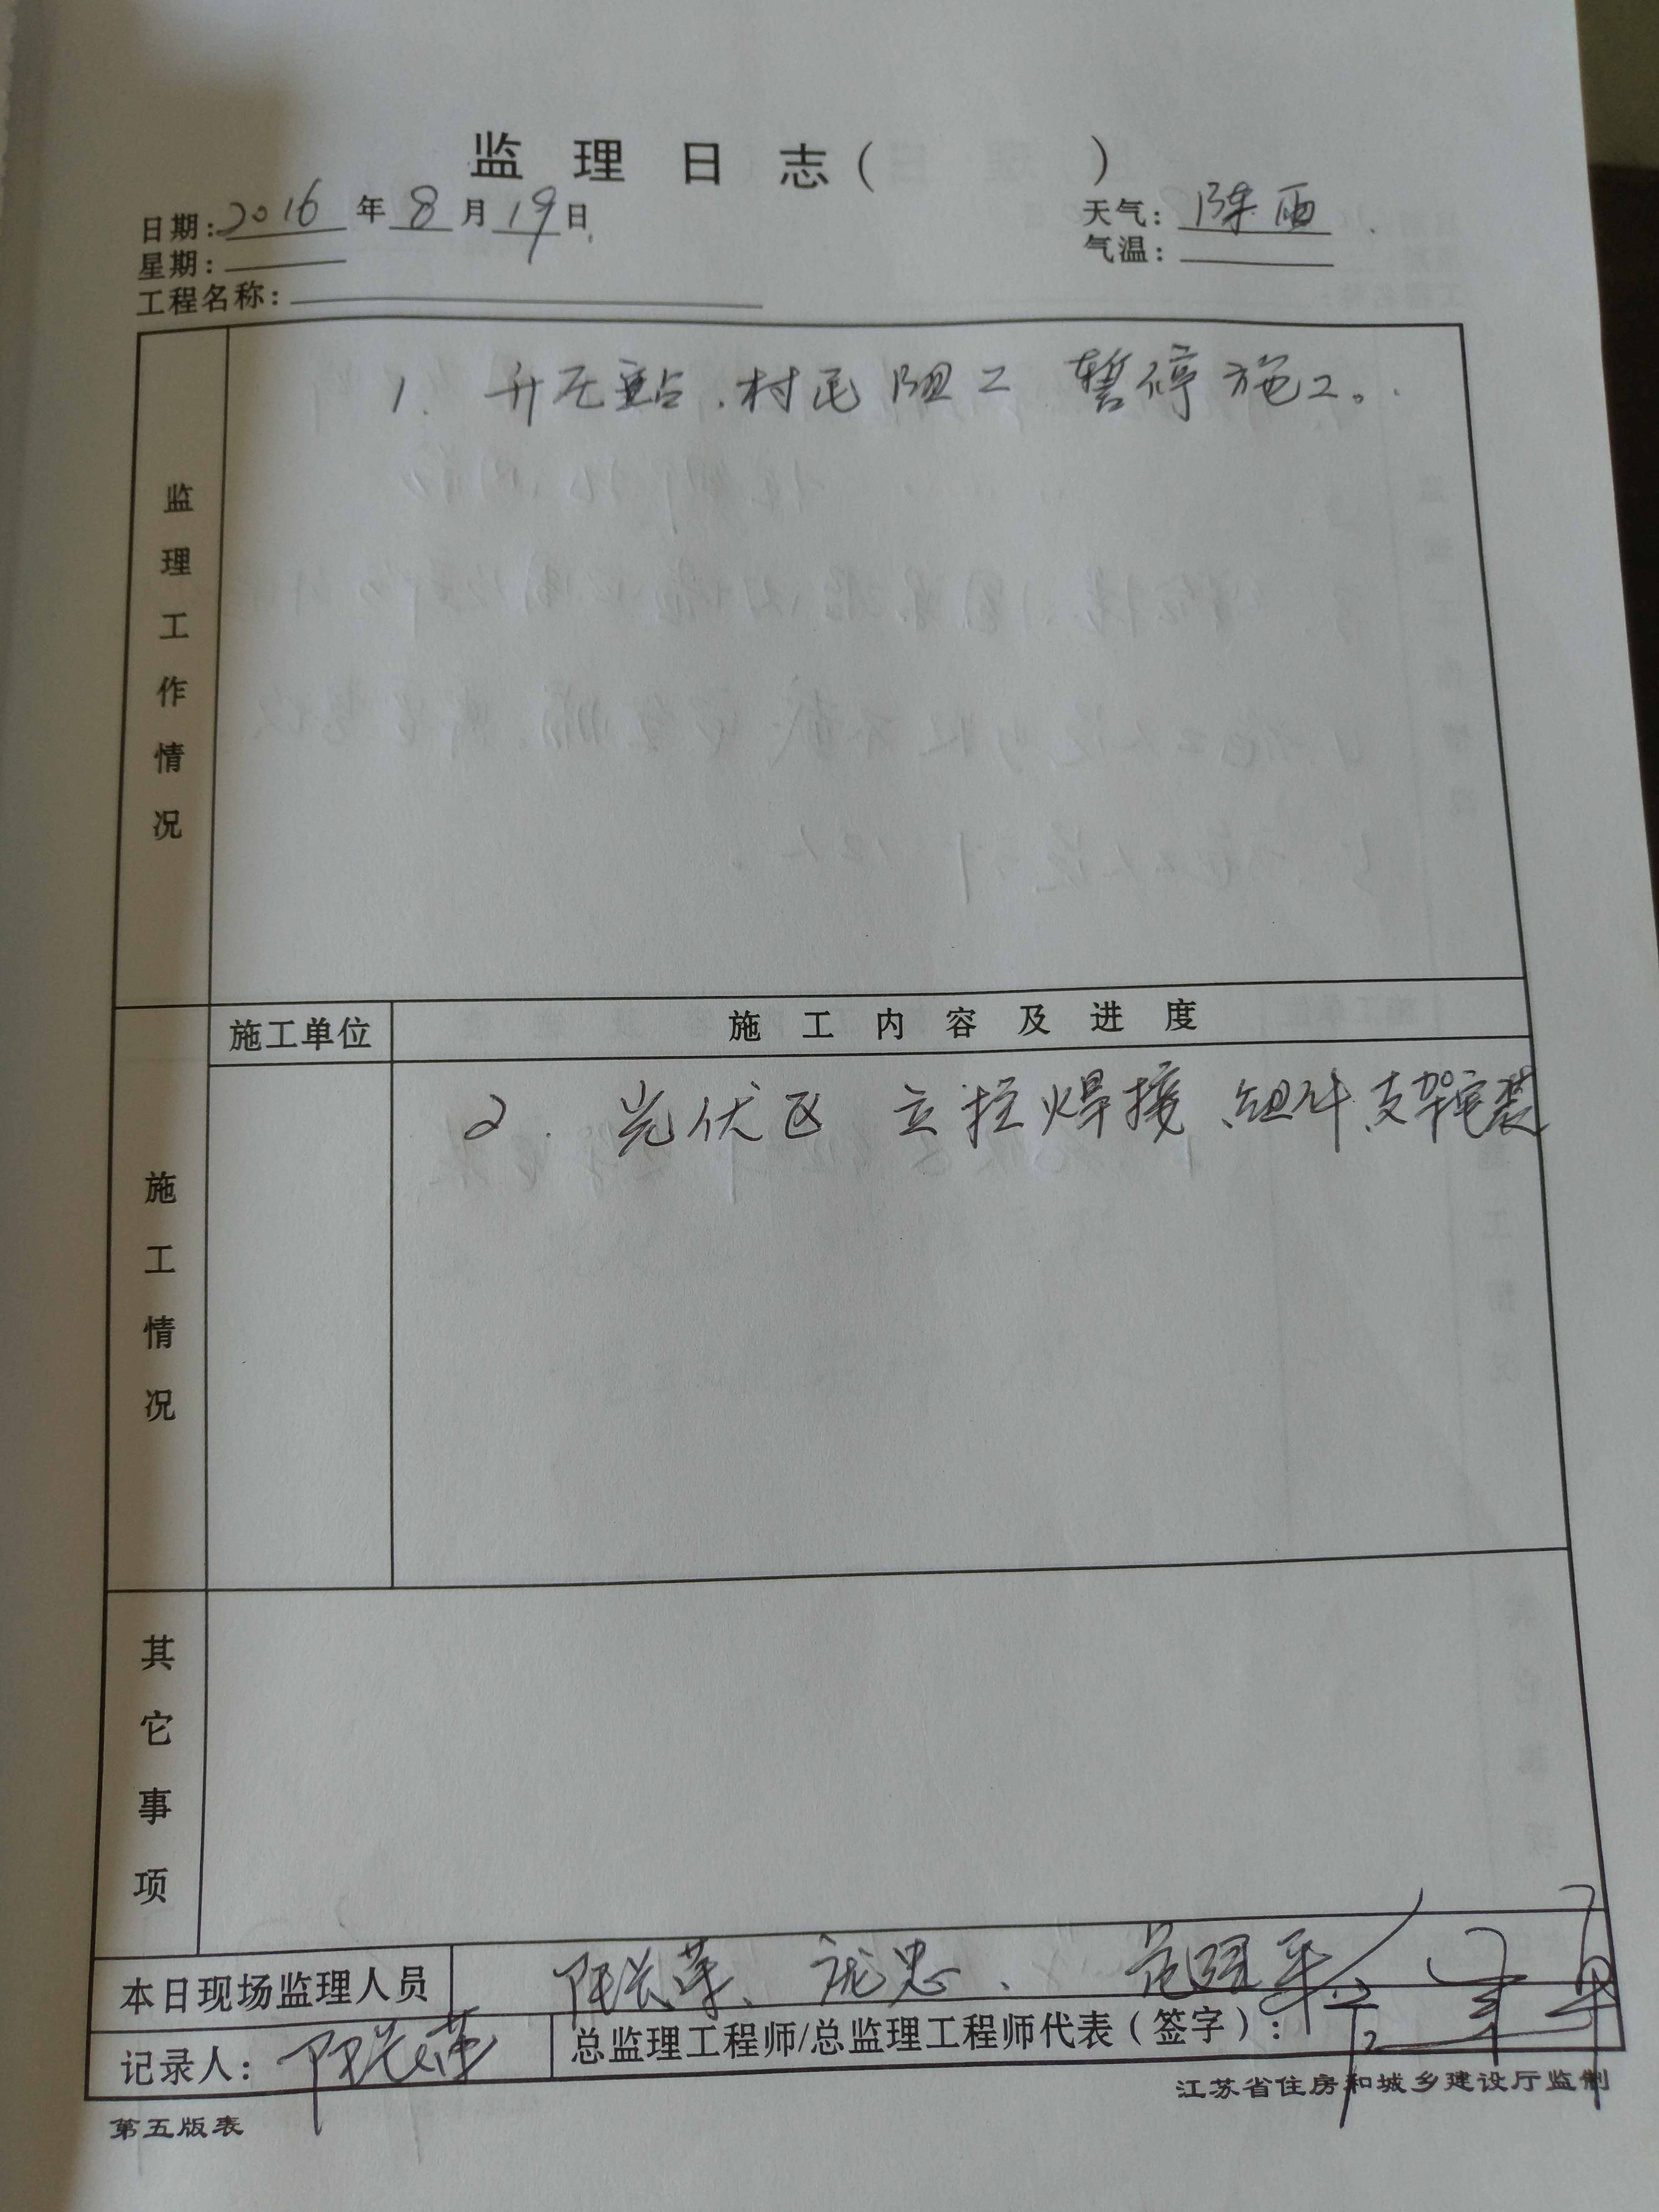 监理日志( )
日期:2016年8月19日
天气:阵雨
星期:
气温:
工程名称:
监理工作情况
1. 升压站、村民阻工 暂停施工。
施工单位
施工内容及进度
施工情况
2. 光伏区 立柱焊接、组件支架安装
其它事项
本日现场监理人员
庞忠、范强平
记录人:
总监理工程师/总监理工程师代表(签字):
江苏省住房和城乡建设厅监制
第五版表